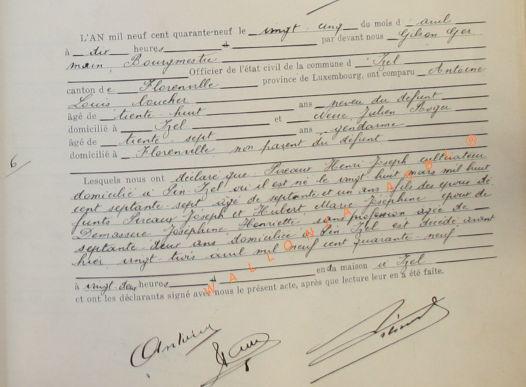 L'AN mil neuf cent quarante-neuf le vingt cinq du mois d avril
à dix heures par devant nous Gibson Ger
main, Bourgmestre
Officier de l'état civil de la commune d Izel
canton de Florenville province de Luxembourg, ont comparu Antoine
Louis
âgé de trente huit ans neveu du défunt
domicilié à Izel et Julien
âgé de trente sept ans gendarme
domicilié à Florenville non parent du défunt
6
Lesquels nous ont déclaré que Pireaux Henri Joseph cultivateur
domicilié à Pin Izel où il est né le vingt huit mars mil huit
cent septante-sept âgé de septante et un ans fils des époux dé
funts Pireaux Joseph et Hubert Marie Joséphine époux de
Demassere Joséphine Henriette sans profession âgée de
septante deux ans domiciliée à Pin Izel est décédé avant
hier vingt trois avril mil neuf cent quarante-neuf
à vingt deux heures en sa maison à Izel
et ont les déclarants signé avec nous le présent acte, après que lecture leur en a été faite.
WALLONIA
Antoine